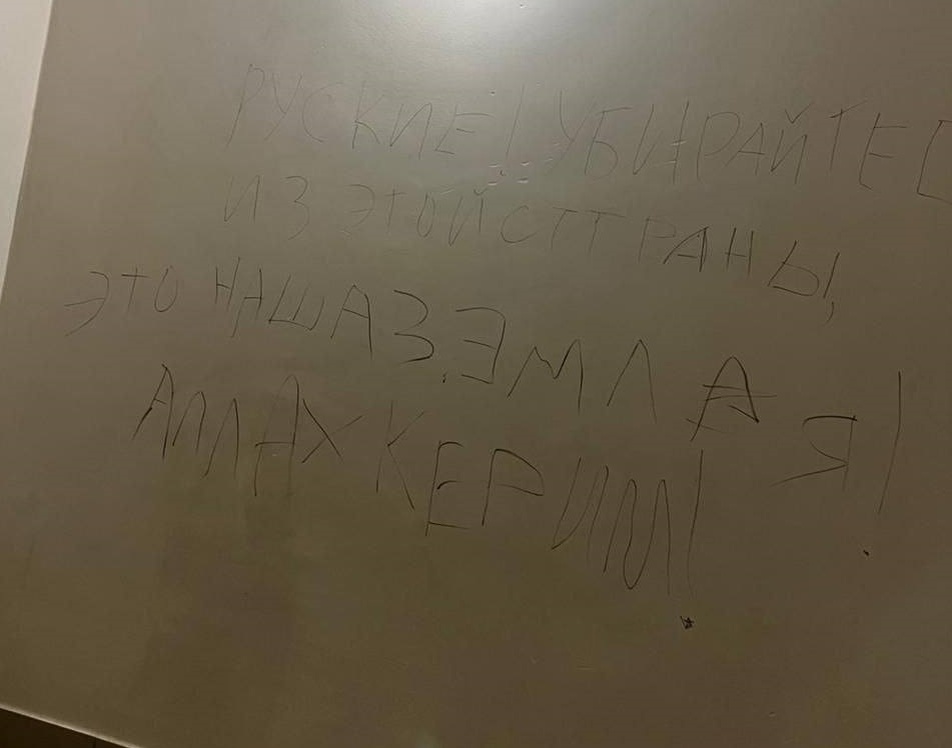 РУСКИЕ! УБИРАЙТЕС
ИЗ ЭТОЙ СТТРАНЫ,
ЭТО НАША ЗЭМЛА Я!
АЛЛАХ КЕРИМ!